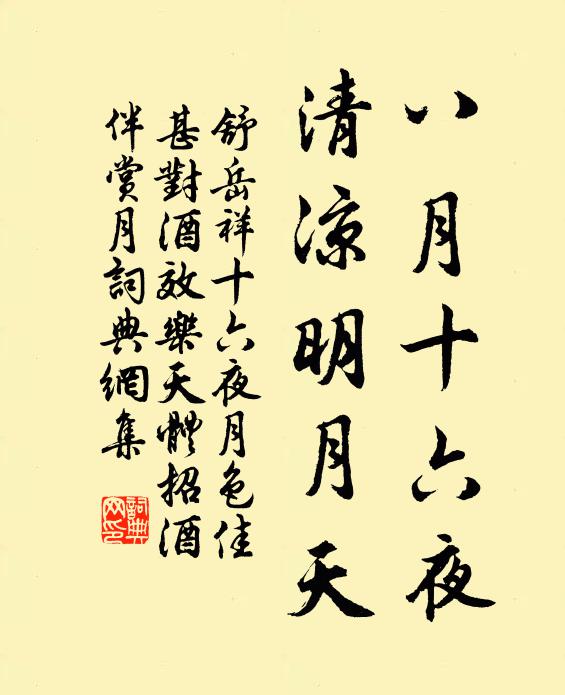 八月十六夜
清涼明月天
舒岳祥十六夜月色佳
甚對酒效樂天體招酒
伴賞月詞典網集
詞典
网印